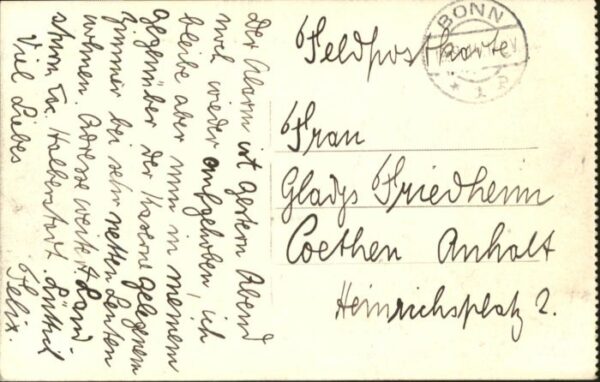 Der Alarm ist gestern Abend
noch wieder aufgehoben, ich
bleibe aber nun in meinem
gegenüber der Kaserne gelegnen
Zimmer bei sehr netten Leuten
wohnen. Adresse weiter Land
sturm Halberstadt.
Viel Liebes
Felix.
BONN
Feldpostkarte
Frau
Gladys Friedheim
Coethen Anhalt
Heinrichsplatz 2.